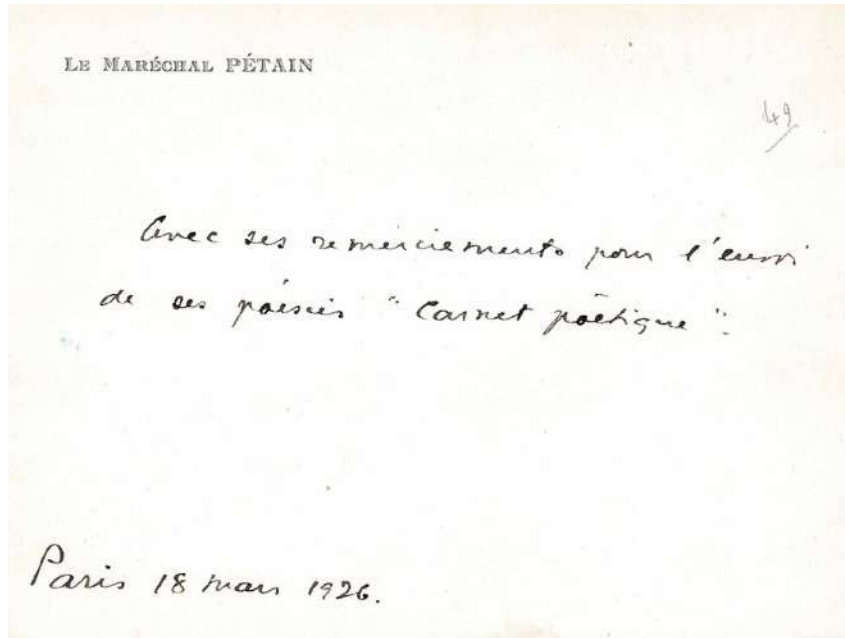 LE MARÉCHAL PÉTAIN
49
Avec ses remerciements pour l'envoi
de ses poésies "Carnet poëtique".
Paris 18 mars 1926.